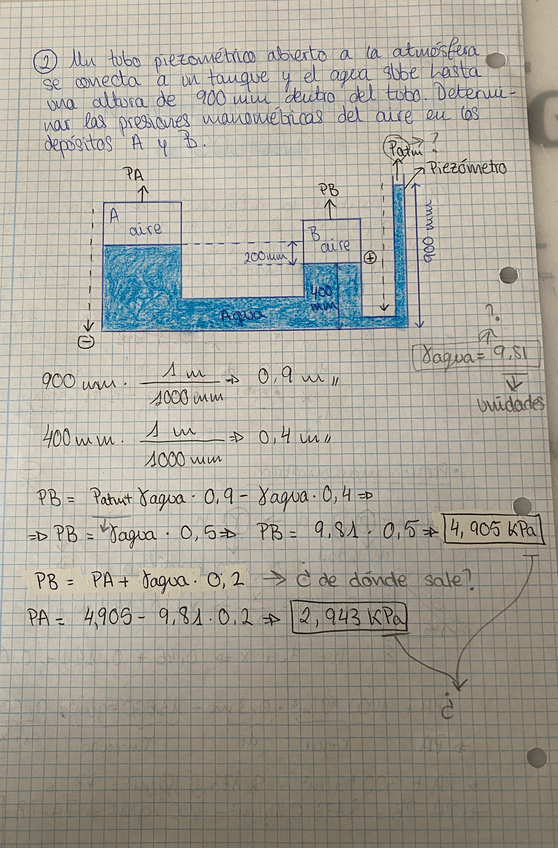 ② Un tubo piezométrico abierto a la atmósfera
se conecta a un tanque y el agua sube hasta
una altura de 900 mm dentro del tubo. Determi-
nar las presiones manométricas del aire en los
depósitos A y B.
Patm ?
Piezómetro
PA
PB
A
aire
B
aire
200mm
⊕
900 mm
400
mm
Agua
⊖
?
γagua = 9,81
unidades
900 mm · 1 m / 1000 mm ⇒ 0,9 m //
400 mm · 1 m / 1000 mm ⇒ 0,4 m //
PB = Patm + γagua · 0,9 − γagua · 0,4 ⇒
⇒ PB = γagua · 0,5 ⇒ PB = 9,81 · 0,5 ⇒ 4,905 KPa
PB = PA + γagua · 0,2 → ¿ de dónde sale?
PA = 4,905 − 9,81 · 0,2 ⇒ 2,943 KPa
¿